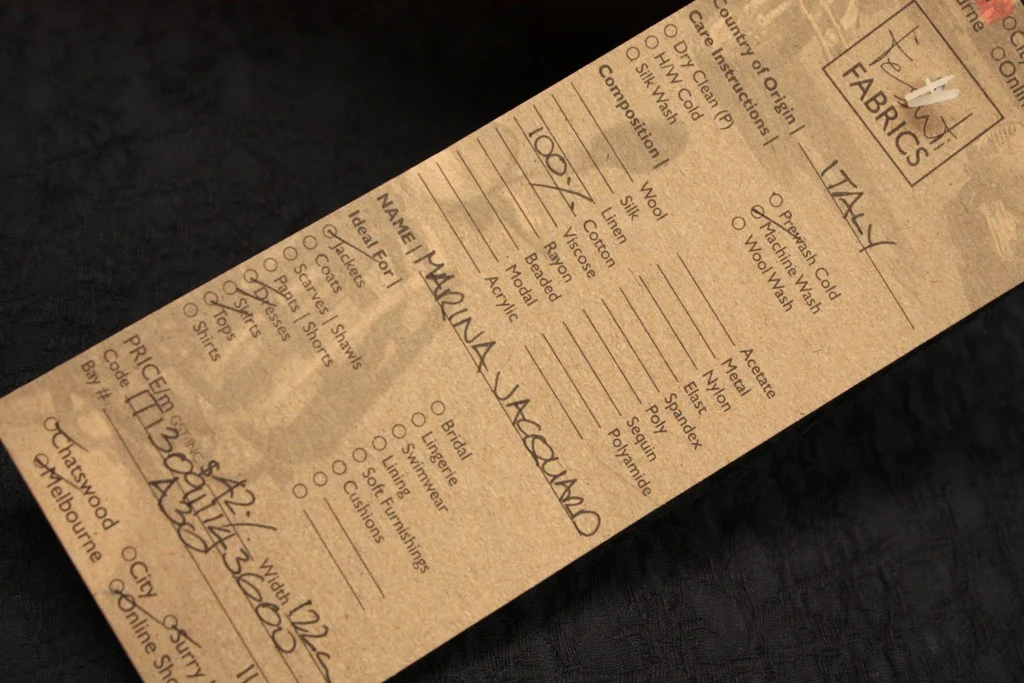 FABRICS
Country of Origin | ITALY
Care Instructions |
Dry Clean (P)
H/W Cold
Silk Wash
Prewash Cold
Machine Wash
Wool Wash
Composition |
Wool
Silk
Linen
100% Cotton
Viscose
Rayon
Beaded
Modal
Acrylic
Acetate
Metal
Nylon
Elast
Spandex
Poly
Sequin
Polyamide
NAME | MARINA JACQUARD
Ideal For |
Jackets
Coats
Scarves | Shawls
Pants | Shorts
Dresses
Skirts
Tops
Shirts
Bridal
Lingerie
Swimwear
Lining
Soft Furnishings
Cushions
PRICE/m $ 42./. Width 122c
Code
Bay # A30
Chatswood
Melbourne
City
Surry
Online Sho
urne
Onlin